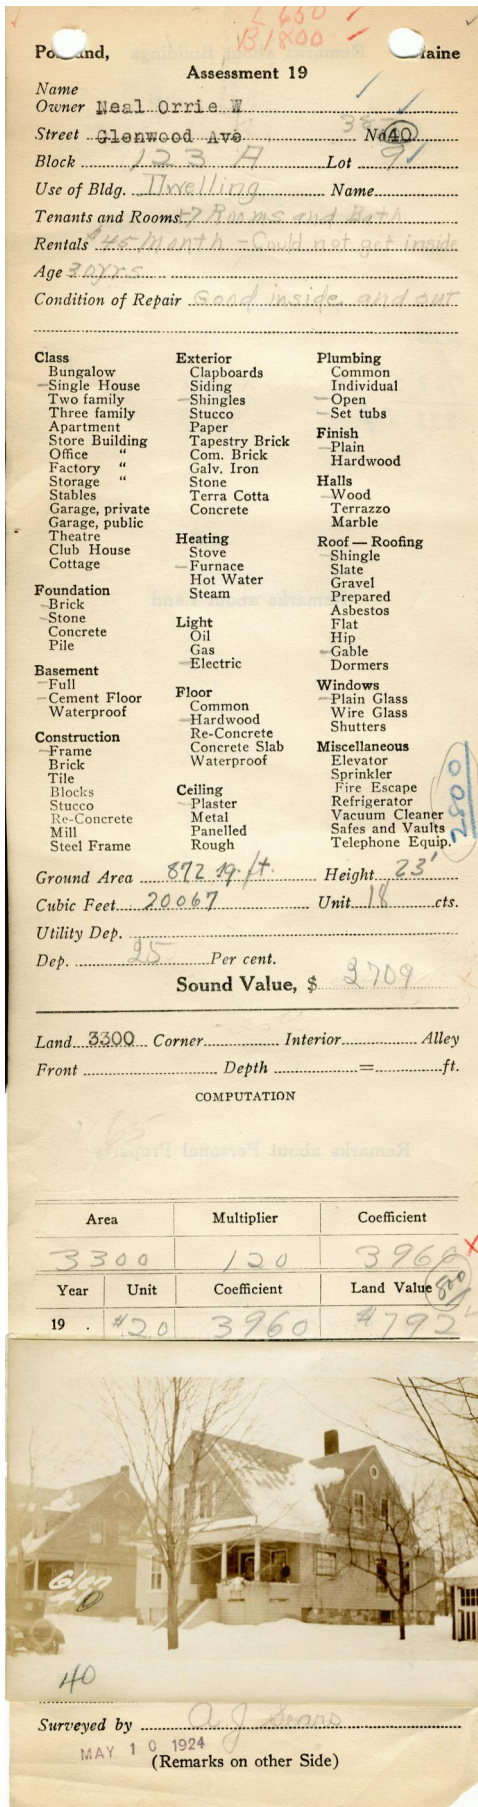 L 650
B 1800
Portland, Maine
Assessment 19
Name
Owner Neal Orrie W
Street Glenwood Ave No 40
Block 123 A Lot 9
Use of Bldg. Dwelling Name
Tenants and Rooms 7 Rooms and Bath
Rentals $45 Month - Could not get inside
Age 30 yrs
Condition of Repair Good inside and out
Class
Bungalow
Single House
Two family
Three family
Apartment
Store Building
Office "
Factory "
Storage "
Stables
Garage, private
Garage, public
Theatre
Club House
Cottage
Foundation
Brick
Stone
Concrete
Pile
Basement
Full
Cement Floor
Waterproof
Construction
Frame
Brick
Tile
Blocks
Stucco
Re-Concrete
Mill
Steel Frame
Exterior
Clapboards
Siding
Shingles
Stucco
Paper
Tapestry Brick
Com. Brick
Galv. Iron
Stone
Terra Cotta
Concrete
Heating
Stove
Furnace
Hot Water
Steam
Light
Oil
Gas
Electric
Floor
Common
Hardwood
Re-Concrete
Concrete Slab
Waterproof
Ceiling
Plaster
Metal
Panelled
Rough
Plumbing
Common
Individual
Open
Set tubs
Finish
Plain
Hardwood
Halls
Wood
Terrazzo
Marble
Roof — Roofing
Shingle
Slate
Gravel
Prepared
Asbestos
Flat
Hip
Gable
Dormers
Windows
Plain Glass
Wire Glass
Shutters
Miscellaneous
Elevator
Sprinkler
Fire Escape
Refrigerator
Vacuum Cleaner
Safes and Vaults
Telephone Equip.
2800
Ground Area 872 sq. ft. Height 23'
Cubic Feet 20067 Unit 18 cts.
Utility Dep.
Dep. 25 Per cent.
Sound Value, $ 2709
Land 3300 Corner Interior Alley
Front Depth = ft.
COMPUTATION
Remarks about Personal Property
Area Multiplier Coefficient
3300 120 3960
Year Unit Coefficient Land Value 800
19 . $20 3960 $792
Glen
40
40
Surveyed by
MAY 10 1924
(Remarks on other Side)